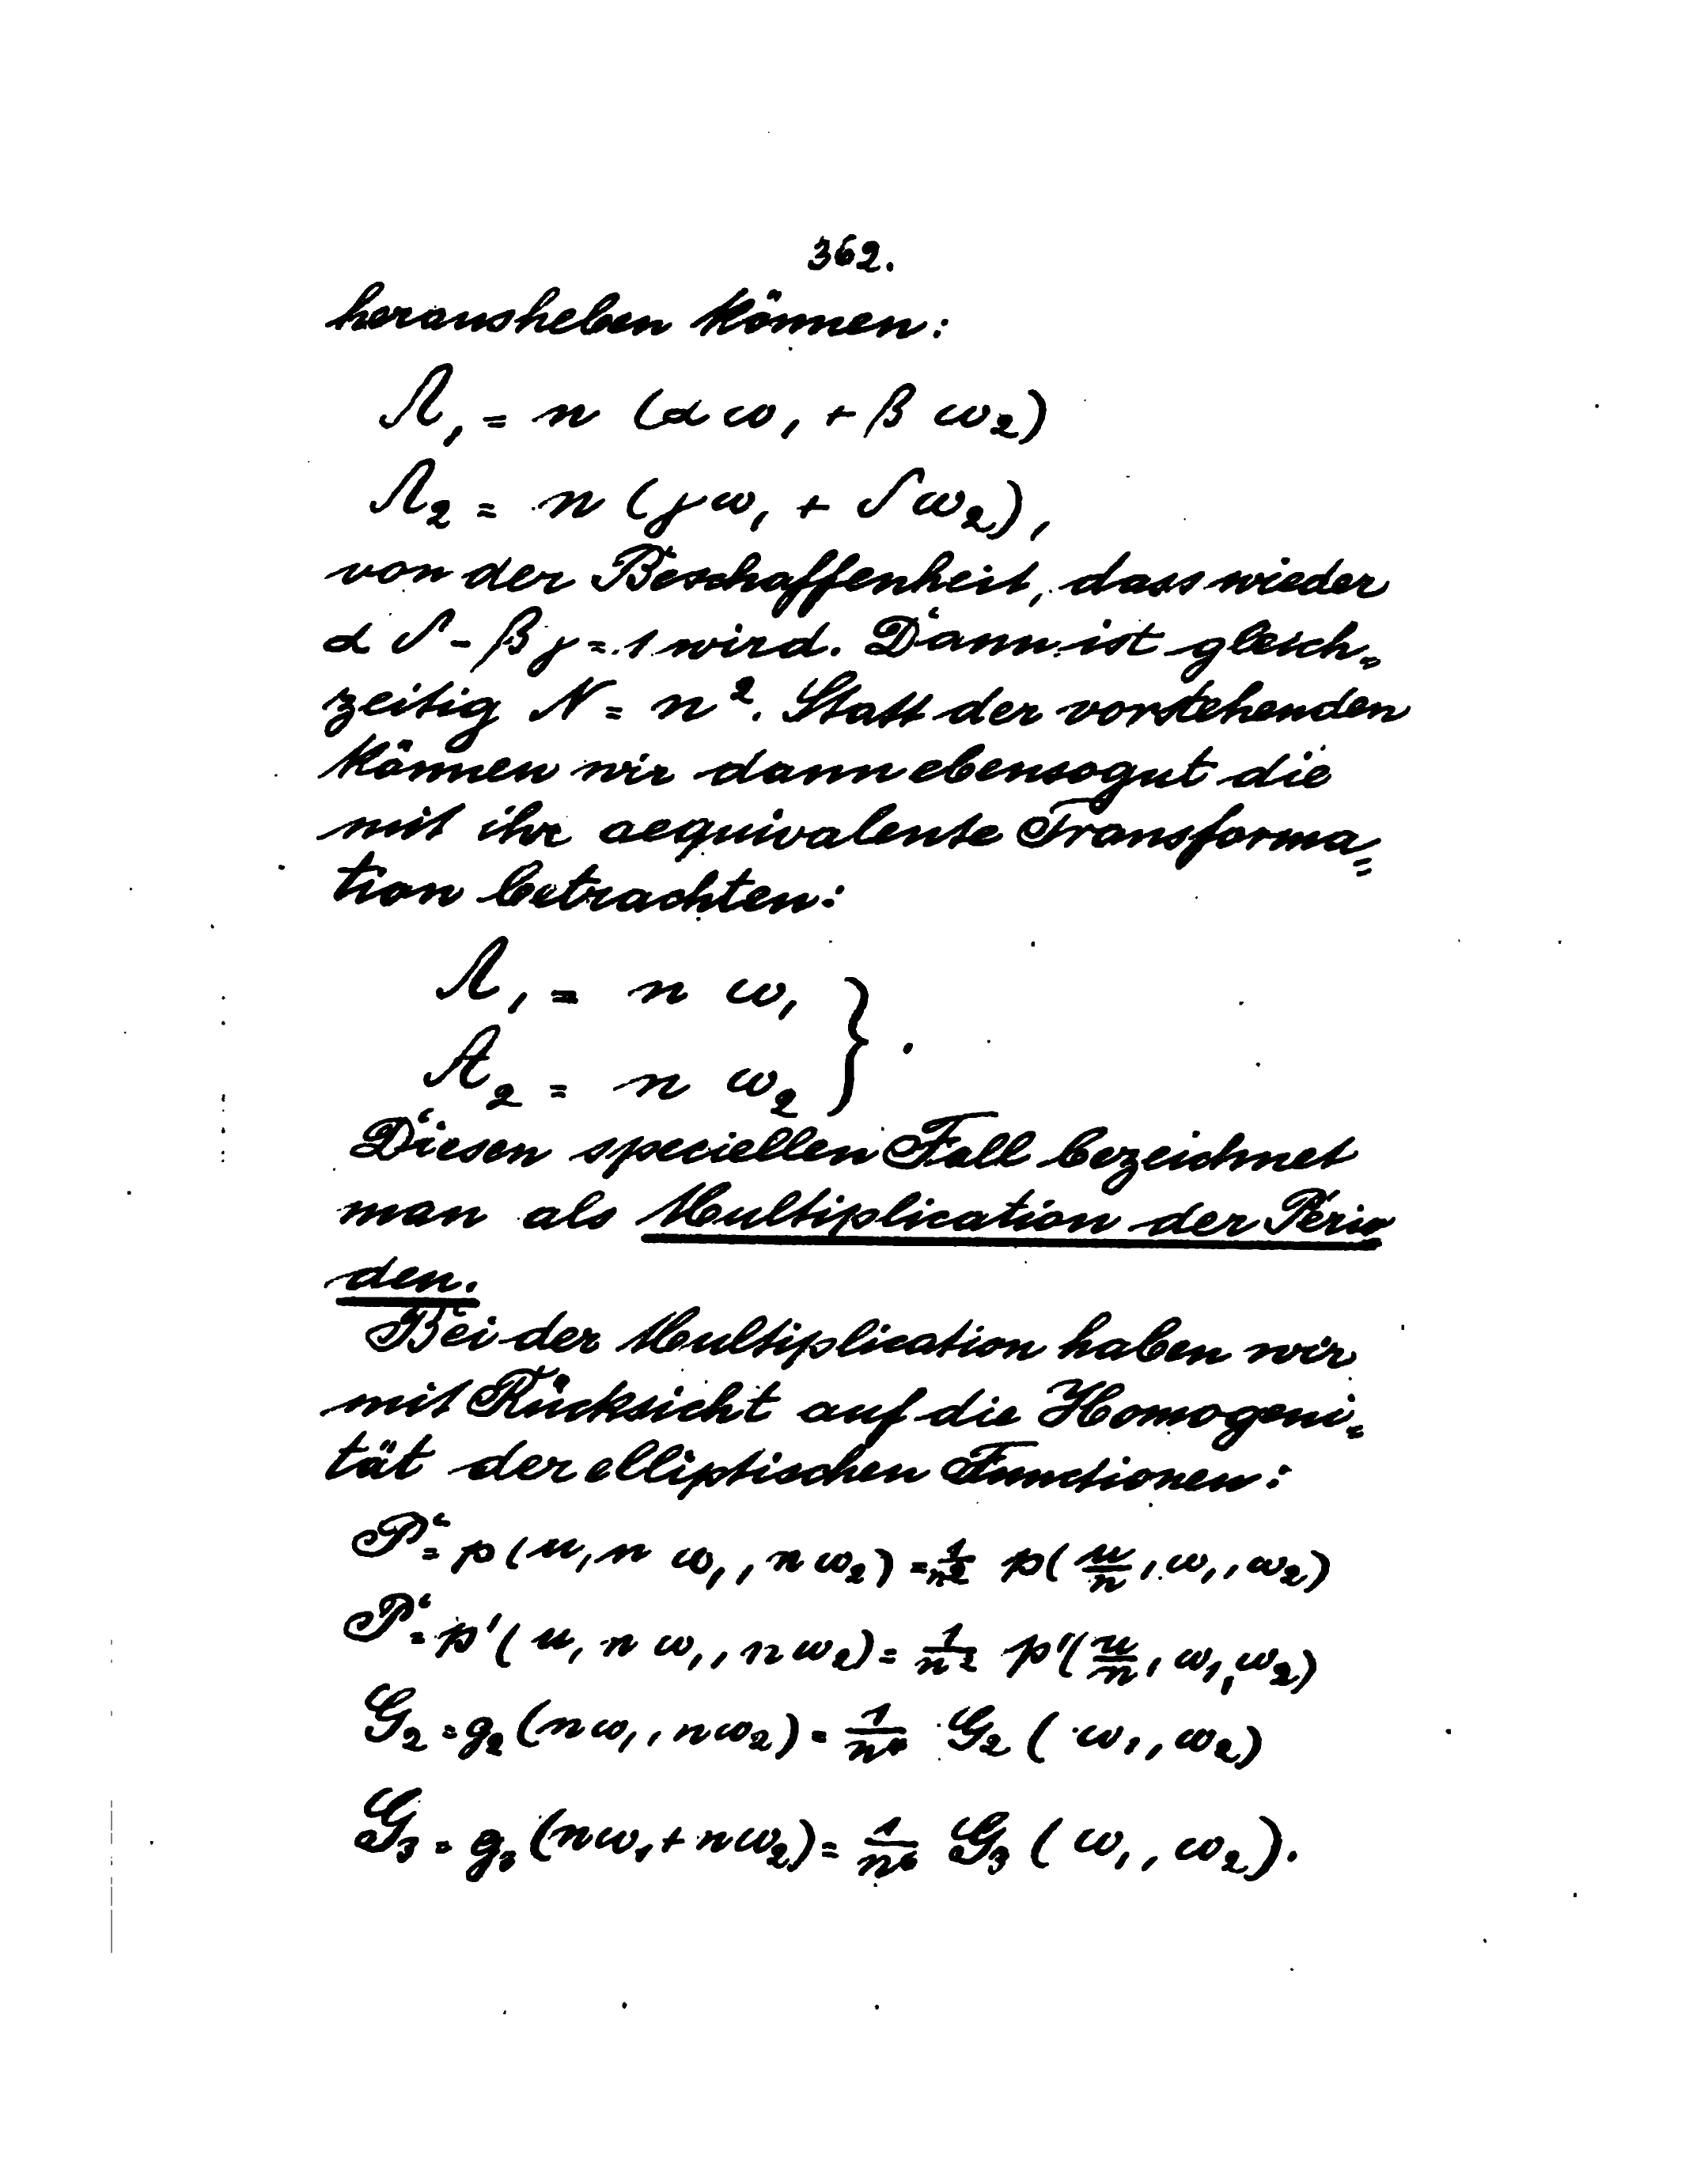 362.
herausheben können:
Λ₁ = n (α ω₁ + β ω₂)
Λ₂ = n (γ ω₁ + δ ω₂),
von der Beschaffenheit, dass wieder
α δ - β γ = 1 wird. Dann ist gleich=
zeitig N = n². Statt der vorstehenden
können wir dann ebensogut die
mit ihr aequivalente Transforma=
tion betrachten:
Λ₁ = n ω₁
Λ₂ = n ω₂ } .
Diesen speciellen Fall bezeichnet
man als Multiplication der Perio=
den.
Bei der Multiplication haben wir
mit Rücksicht auf die Homogeni=
tät der elliptischen Functionen:
P = p (u, n ω₁, n ω₂) = 1/n² p (u/n, ω₁, ω₂)
P' = p' (u, n ω₁, n ω₂) = 1/n² p' (u/n, ω₁, ω₂)
G₂ = g₂ (n ω₁, n ω₂) = 1/n⁴ G₂ (ω₁, ω₂)
G₃ = g₃ (n ω₁ + n ω₂) = 1/n⁶ G₃ (ω₁, ω₂).